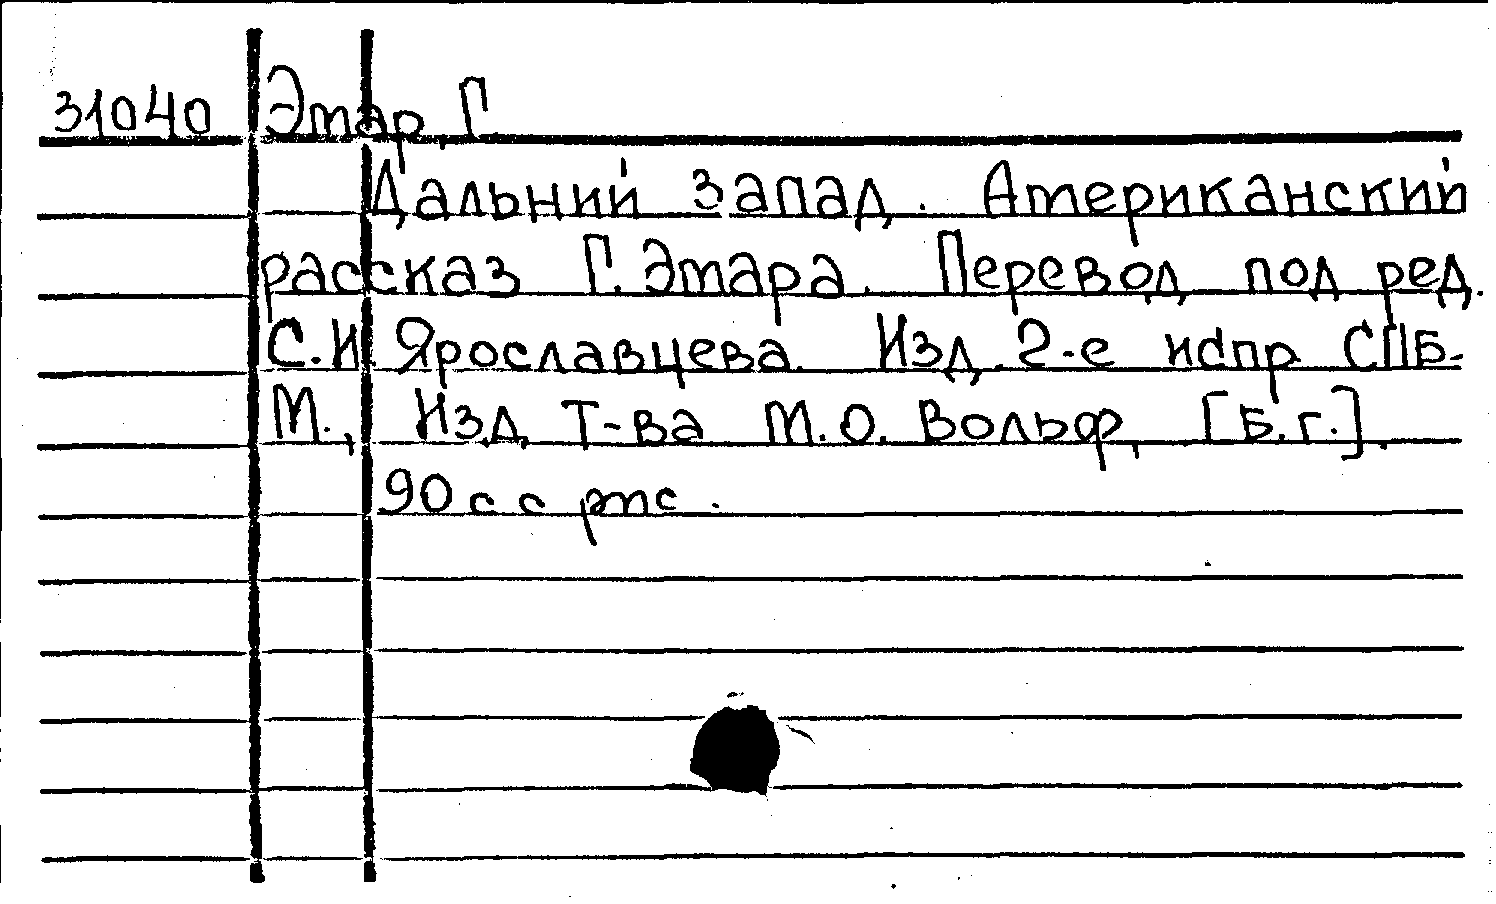 31040 Этар, Г
Дальний запад. Американский
рассказ Г. Этара. Перевод под ред.
С.И. Ярославцева. Изд. 2-е испр СПБ-
М., Изд. Т-ва М.О. Вольф, [Б.г.].
90 с с рис.